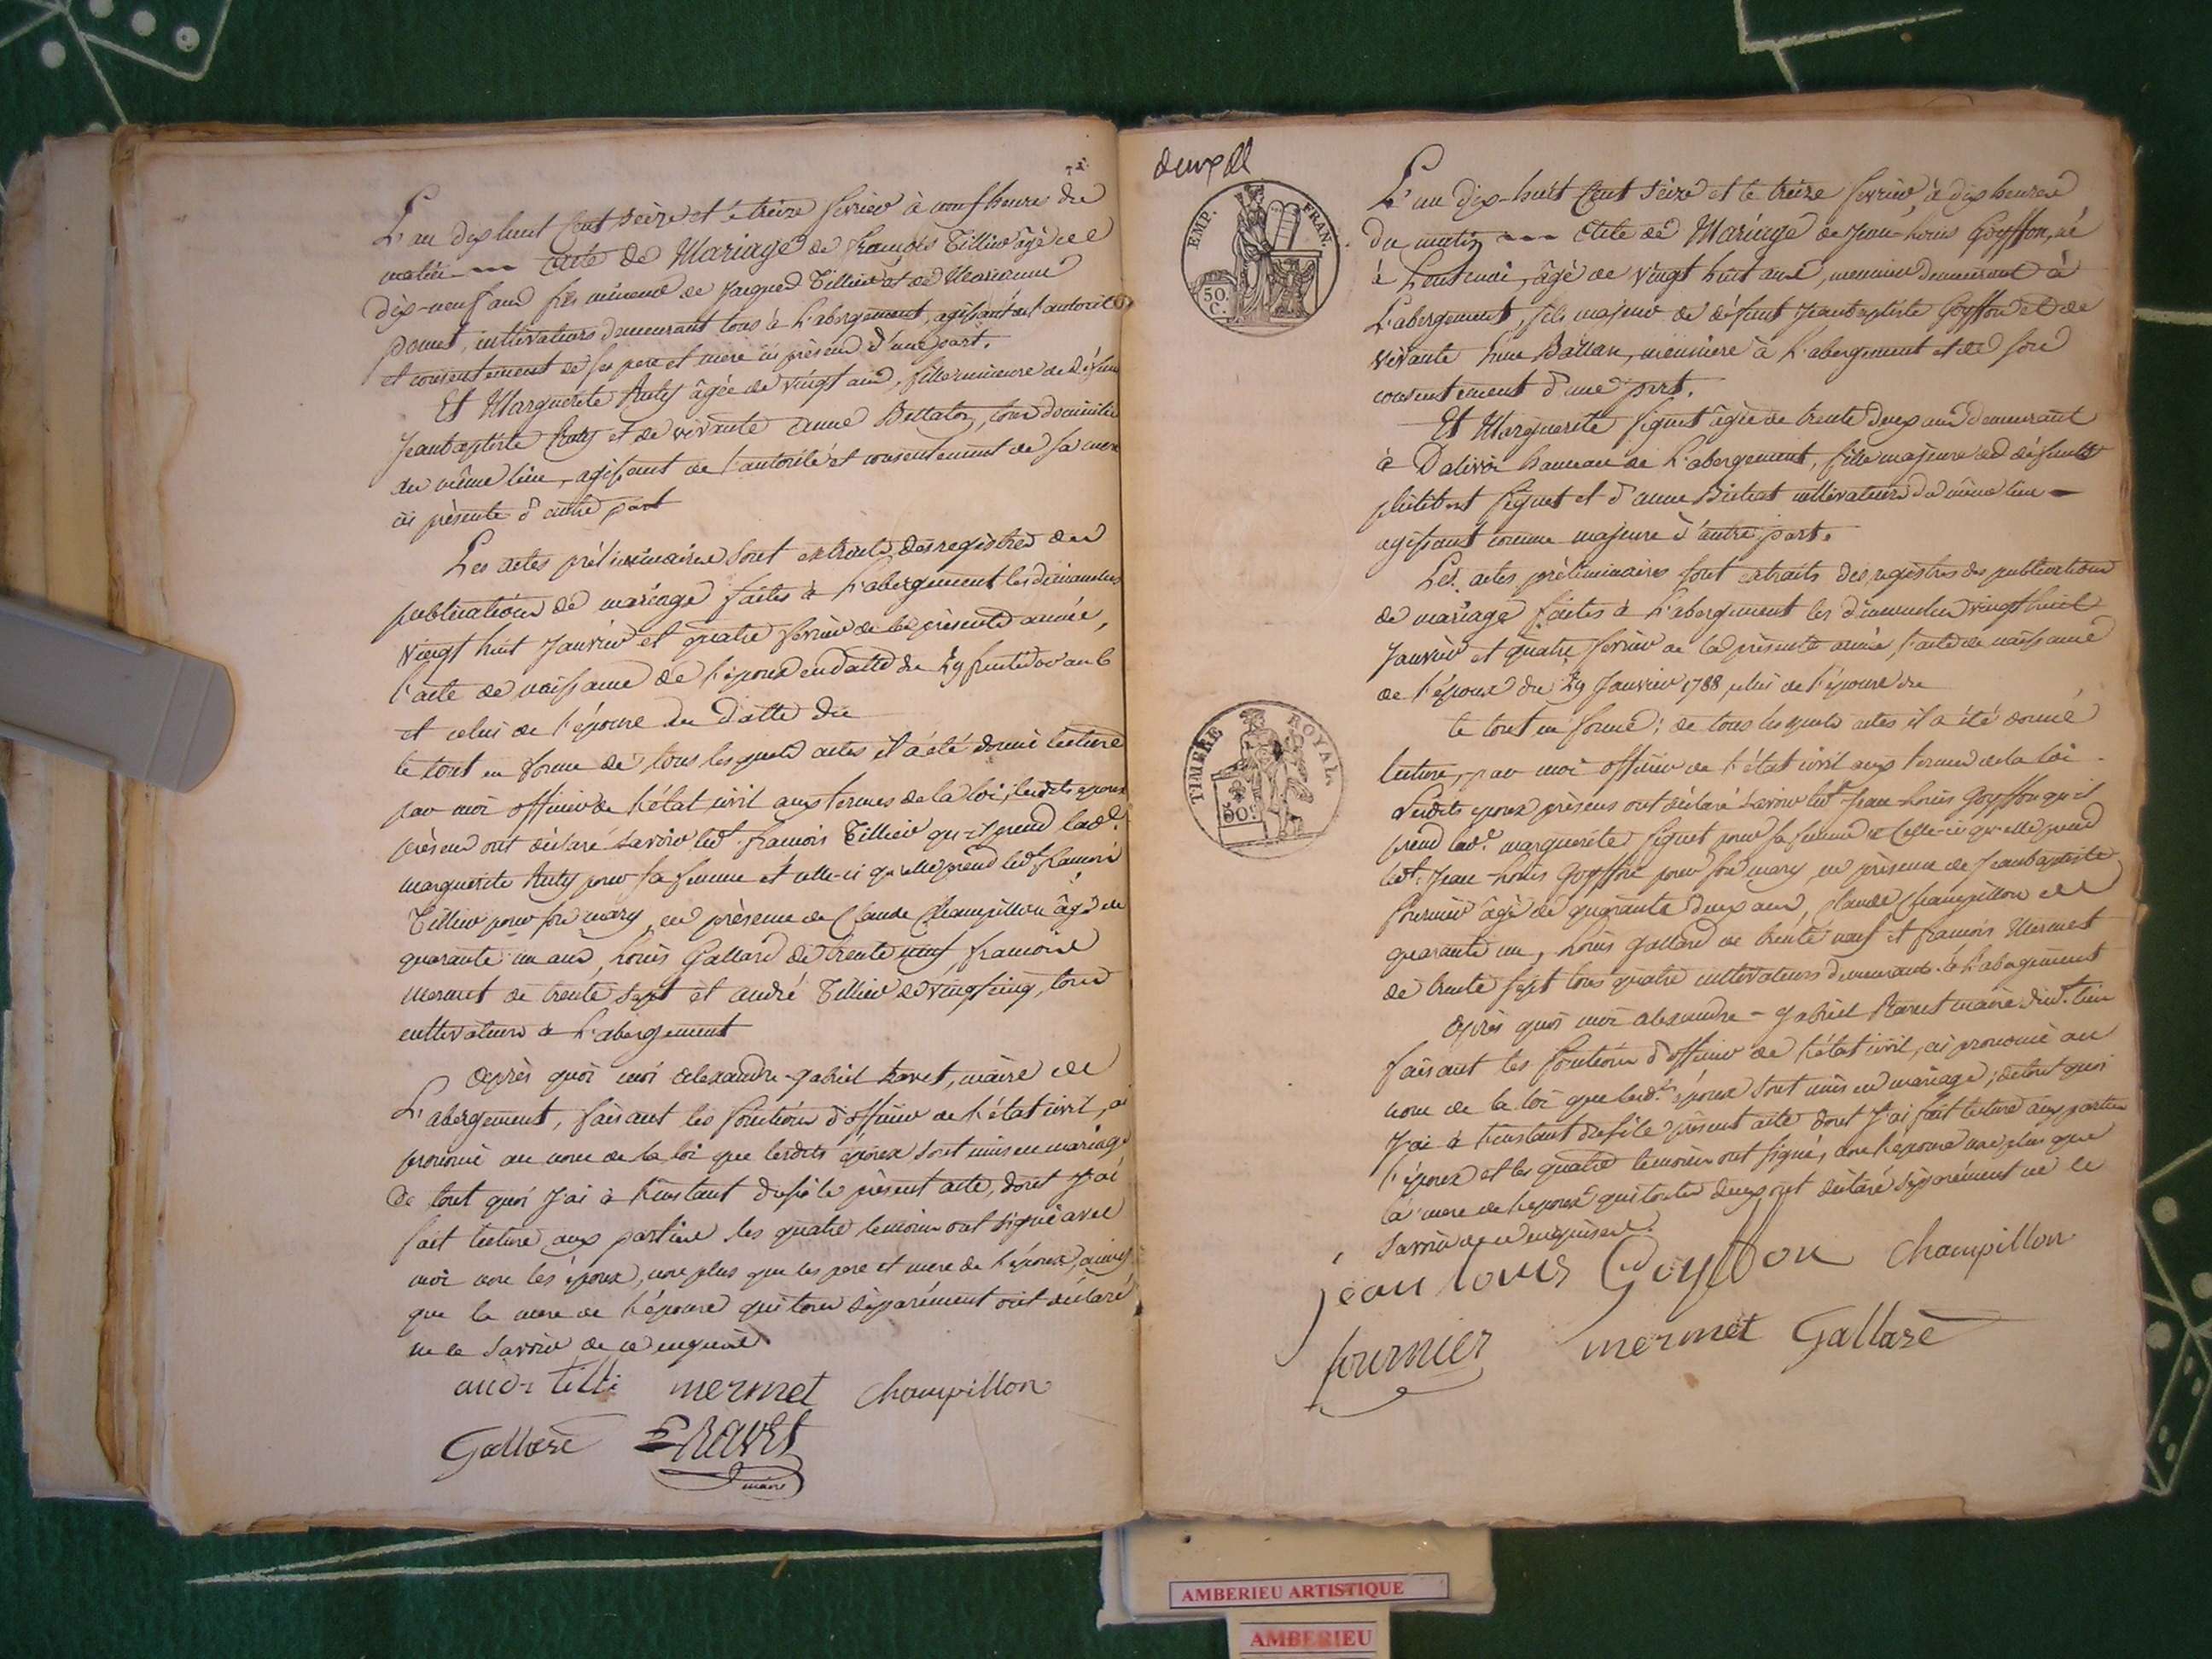 L'an dix huit Cent seize et le treize fevrier à neuf heures du
matin --- Acte de Mariage de françois Tillier âgé de
dix-neuf ans fils mineur de Jacques Tillier et de Marianne
ponet, cultivateurs demeurant tous à L'abergement, agissant de l'autorité
et consentement de ses pere et mere ici présens d'une part.
Et Marguerite Ruty âgée de vingt ans, fille mineure de défunt
Jeanbaptiste Ruty et de vivante Anne Bettaton, tous domiciliés
du même lieu, agissant de l'autorité et consentement de sa mere
ici présente d'autre part
Les actes préliminaires sont extraits des registres des
publications de mariage faites à L'abergement les dimanches
vingt huit Janvier et quatre fevrier de la présente année,
l'acte de naissance de l'époux en datte du 29 fructidor an
et celui de l'épouse en datte du
le tout en forme de tous lesquels actes il a été donné lecture
par moi officier de l'état civil aux termes de la loi, lesdits époux
présens ont déclaré savoir ledt françois Tillier qu'il prend lade
marguerite Ruty pour sa femme et celle-ci qu'elle prend ledt françois
Tillier pour son mary, en présence de Claude Champillon âgé de
quarante un ans, Louis Gallard de trente neuf françois
Mermet de trente sept et andré Tillier de vingt cinq, tous
cultivateurs à L'abergement
Après quoi moi Alexandre-gabriel Ravet, maire de
L'abergement, faisant les fonctions d'officier de l'état civil, ai
prononcé au nom de la loi que lesdits époux sont unis en mariage
de tout quoi J'ai à l'instant dressé le présent acte, dont J'ai
fait lecture aux parties les quatre temoins ont signé avec
moi non les époux, non plus que les pere et mere de l'époux, ainsi
que la mere de l'épouse qui tous séparément ont déclaré
ne le savoir de ce enquis
mermet Champillon
Gallard Ravet
maire
deux
EMP. FRAN.
50. C.
TIMBRE ROYAL
50.
L'an dix-huit Cent seize et le treize fevrier à dix heures
du matin --- Acte de Mariage de Jean-Louis Goyffon, né
à , âgé de vingt huit ans, meunier demeurant à
L'abergement, fils majeur de défunt Jeanbaptiste Goyffon et de
vivante Ballan, meuniere à L'abergement et de son
consentement d'une part.
Et Marguerite figuet âgée de trente deux ans demeurant
à Dalivoi hameau de L'abergement, fille majeure de défunts
philibert figuet et d'anne cultivateurs du même lieu
agissant comme majeure d'autre part.
Les actes préliminaires sont extraits des registres des publications
de mariage faites à L'abergement les dimanches vingt huit
Janvier et quatre fevrier de la présente année, l'acte de naissance
de l'époux du 29 Janvier 1788, celui de l'épouse du
le tout en forme; de tous lesquels actes il a été donné
lecture, par moi officier de l'état civil aux termes de la loi.
Lesdits époux présens ont déclaré savoir ledt Jean-Louis Goyffon qu'il
prend lade marguerite figuet pour sa femme et Celle-ci qu'elle prend
ledt Jean-Louis Goyffon pour son mary, en présence de Jeanbaptiste
fournier âgé de quarante deux ans, Claude Champillon de
quarante un, Louis gallard de trente neuf et françois Mermet
de trente sept tous quatre cultivateurs demeurants à L'abergement
Après quoi moi alexandre-gabriel Ravet maire dudt lieu
faisant les fonctions d'officier de l'état civil, ai prononcé au
nom de la loi que lesdts époux sont unis en mariage; de tout quoi
J'ai à l'instant dressé le présent acte dont J'ai fait lecture aux parties
l'époux et les quatre temoins ont signé, non l'épouse non plus que
la mere de l'époux qui toutes deux ont déclaré séparément ne le
savoir de ce enquises.
jean louis Goyffon Champillon
fournier mermet Gallard
AMBERIEU ARTISTIQUE
AMBERIEU